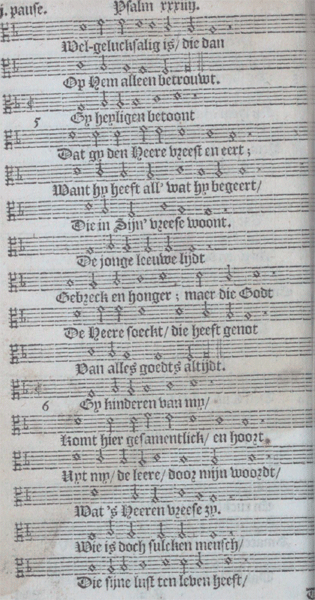 j. pause. Psalm xxxiiij.
Wel-gelucksalig is/ die dan
Op Hem alleen betrouwt.
5 Gy heyligen betoont
Dat gy den Heere vreest en eert;
Want hy heeft all' wat hy begeert/
Die in Sijn' vreese woont.
De jonge leeuwe lijdt
Gebreck en honger; maer die Godt
De Heere soeckt/ die heeft genot
Van alles goedts altijdt.
6 Gy kinderen van my/
Komt hier gesamentlick/ en hoort
Uyt my/ de leere/ door mijn woordt/
Wat 's Heeren vreese zy.
Wie is doch sulcken mensch/
Die sijne lust ten leven heeft/